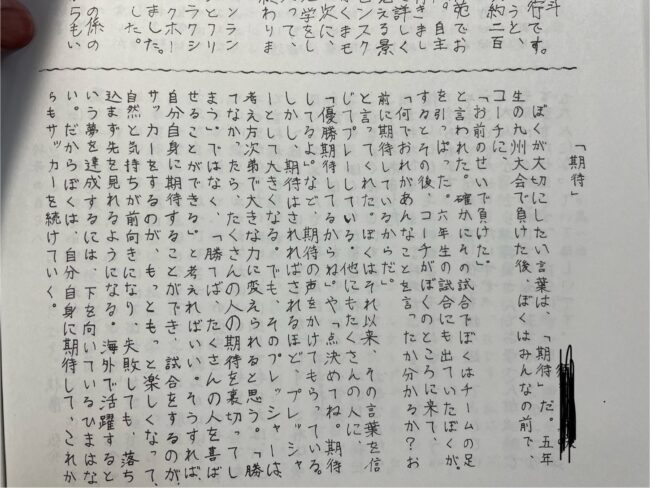 斗
行です。
約二百
うと、
。自主
苑でお
きまし
詳しく
える景
ンスク
くまも
次に、
学をし
て、
終わりま
ンラン
とフリ
ラクシ
クホー
ました。
した。
の係の
らもい
「期待」
ぼくが大切にしたい言葉は、「期待」だ。五年
生の九州大会で負けた後、ぼくはみんなの前で、
コーチに、
「お前のせいで負けた」
と言われた。確かにその試合でぼくはチームの足
を引っぱった。六年生の試合にも出ていたぼくが、
するとその後、コーチがぼくのところに来て、
「何でおれがあんなことを言ったか分かるか？お
前に期待しているからだ」
と言ってくれた。ぼくはそれ以来、その言葉を信
じてプレーしている。他にもたくさんの人に、
「優勝期待してるからね」や「点決めてね。期待
してるよ」など、期待の声をかけてもらっている。
しかし、期待はされればされるほど、プレッシャ
ーとして大きくなる。でも、そのプレッシャーは、
考え方次第で大きな力に変えられると思う。「勝
てなかったら、たくさんの人の期待を裏切ってし
まう。」ではなく、「勝てば、たくさんの人を喜ば
せることができる」と考えればいい。そうすれば、
自分自身に期待することができ、試合をするのが、
サッカーをするのが、もっともっと楽しくなって、
自然と気持ちが前向きになり、失敗しても、落ち
込まず先を見れるようになる。海外で活躍すると
いう夢を達成するには、下を向いているひまはな
い。だからぼくは、自分自身に期待して、これか
らもサッカーを続けていく。